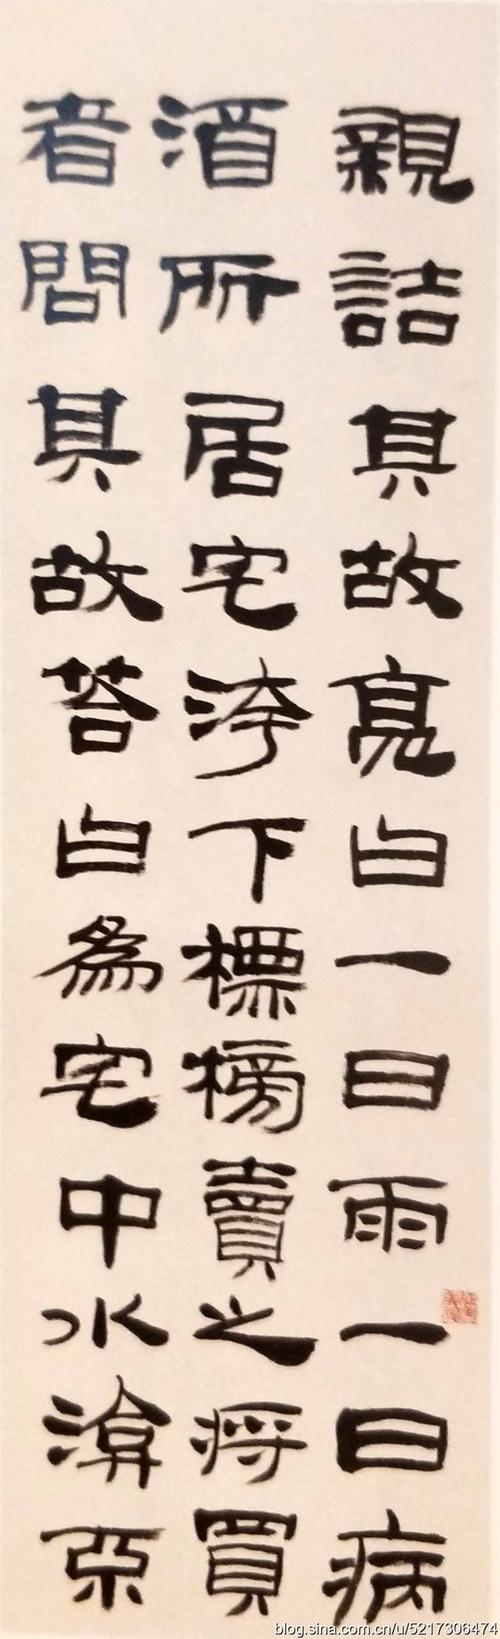 親詰其故亮白一日雨一日病
酒所居宅洿下標榜賣之將買
者問其故荅白為宅中水渰
blog.sina.com.cn/u/5217306474